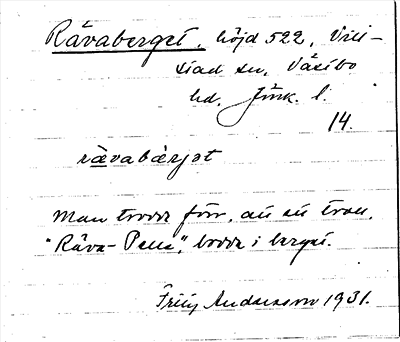 Rävaberget, höjd 522, Vill-
stad sn, Västbo
hd. Jönk. l.
14.
rävabärjət
Man trodde förr, att ett troll,
"Räva-Pelle", bodde i berget.
Andersson 1931.